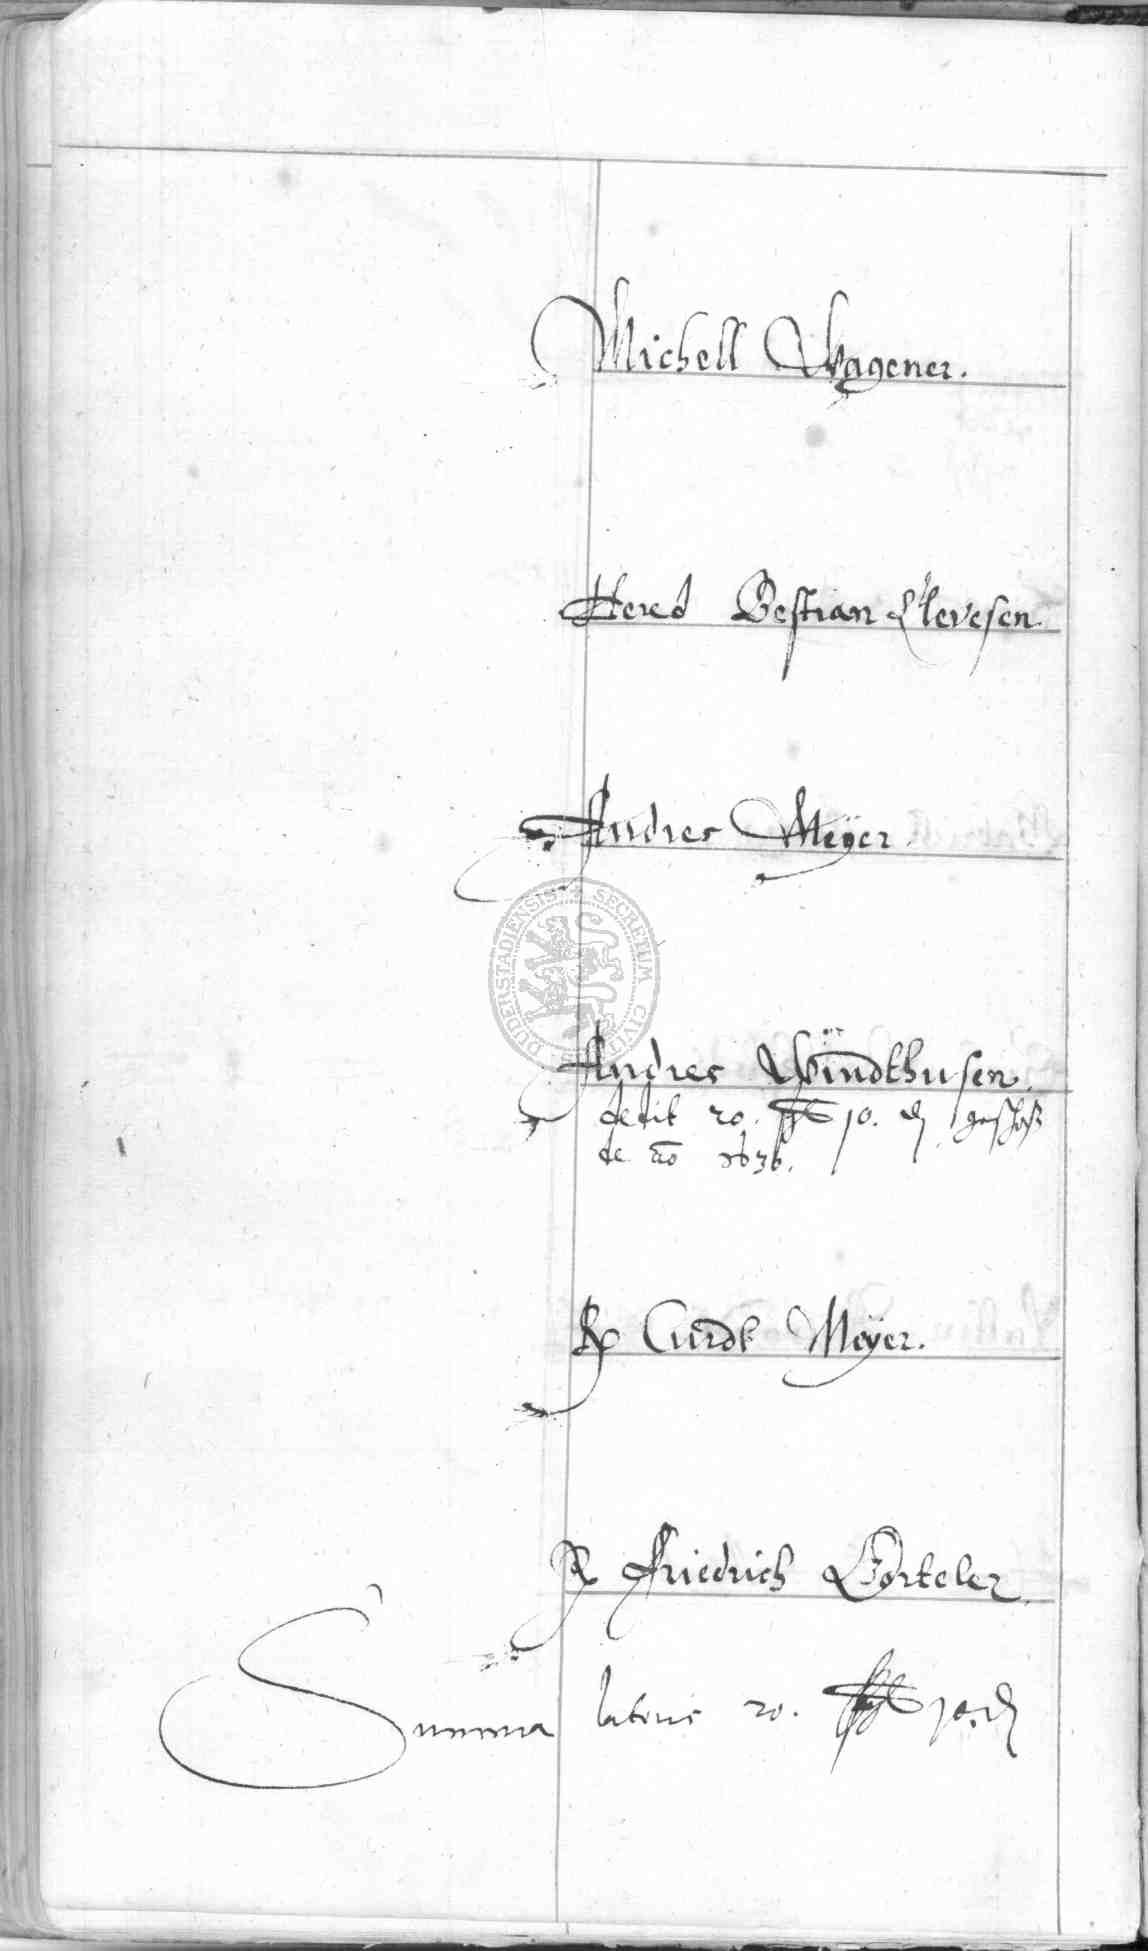 Michell Wagener.
Hered Bestian Clevesen
Andres Meÿer
DUDERSTADIENSIS SECRETUM CIVIT
Andres Windthusen.
dedit 20. 10. ₰ geschoß
de ao 1636.
R Curdt Meÿer.
R Friedrich Borteler.
Summa lateris 20. 10. ₰